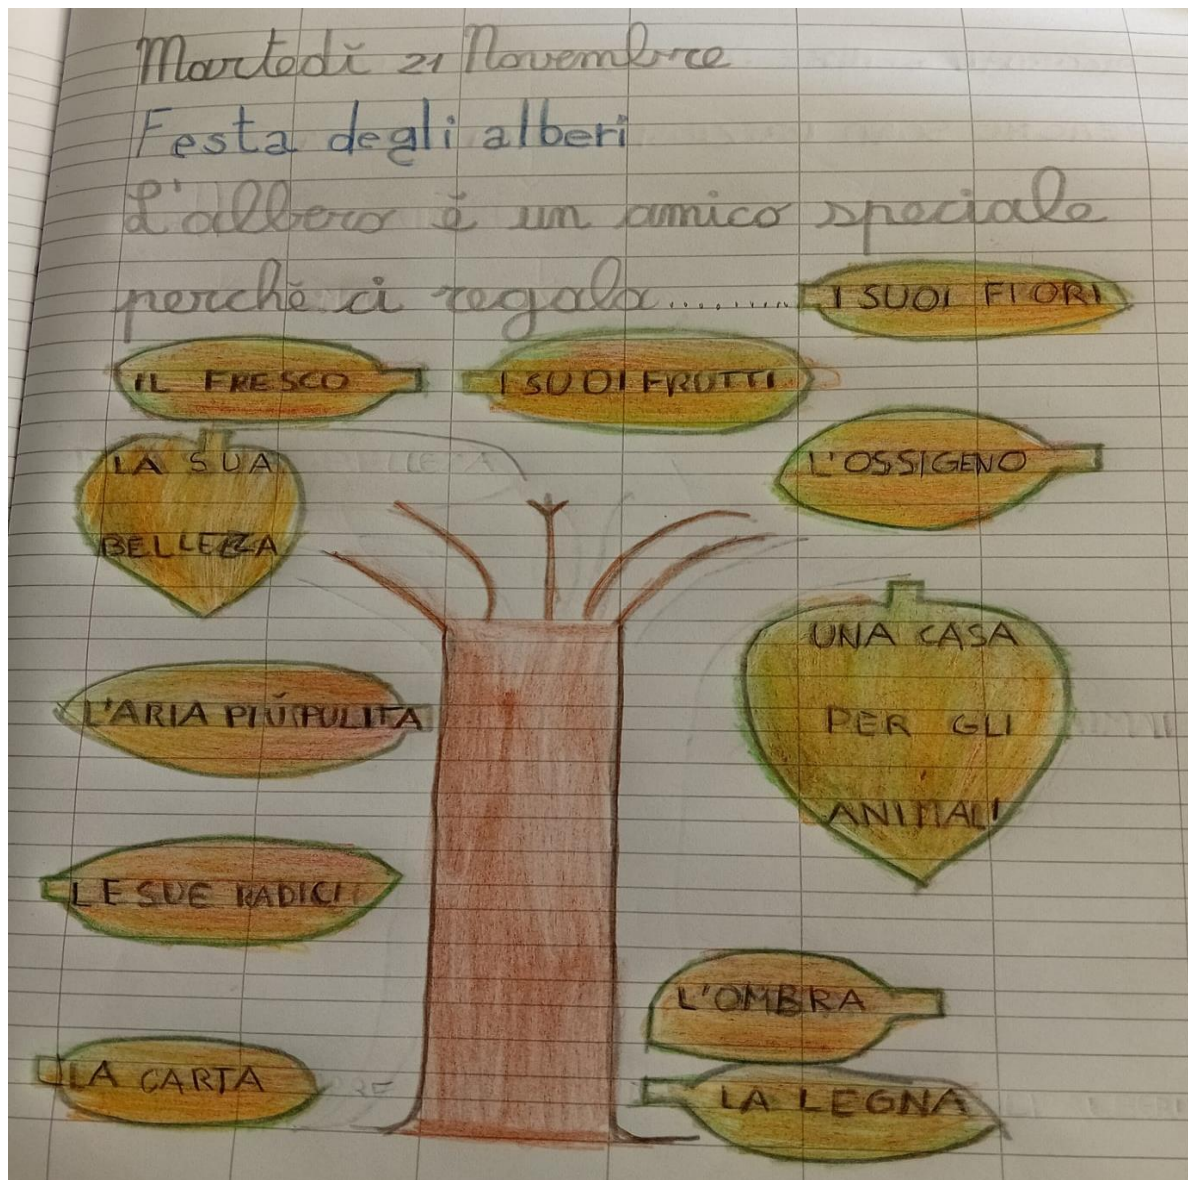 Martedì 21 Novembre
Festa degli alberi
L'albero è un amico speciale
perchè ci regala.........
I SUOI FIORI
IL FRESCO
I SUOI FRUTTI
LA SUA
BELLEZZA
L'OSSIGENO
UNA CASA
PER GLI
ANIMALI
L'ARIA PIÙ PULITA
LE SUE RADICI
L'OMBRA
LA CARTA
LA LEGNA